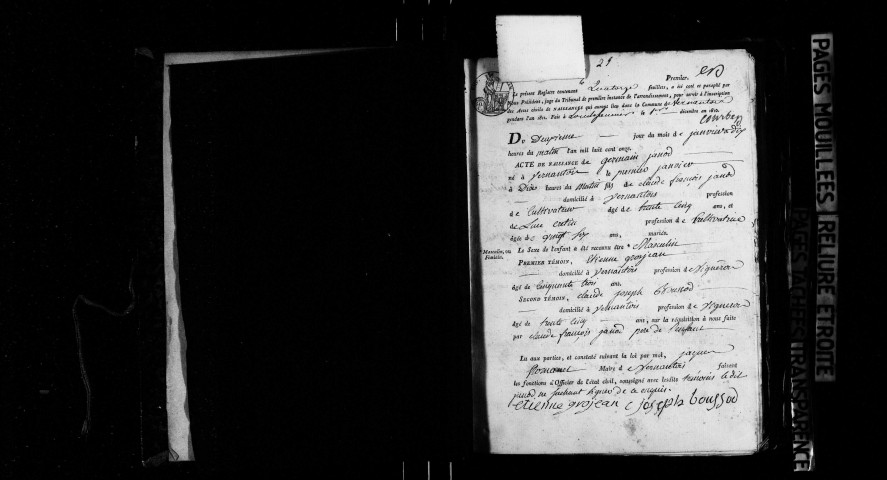 29
Premier.
Le présent Registre contenant Quatorze feuillets, a été coté et paraphé par
Nous Président, juge du Tribunal de première instance de l'arrondissement, pour servir à l'inscription
des Actes civils de NAISSANCE qui auront lieu dans la Commune de Vernantois
pendant l'an 1811. Fait à Lonslesaunier le décembre an 1810.
DU Deuxieme jour du mois de janvier à dix
heures du matin l'an mil huit cent onze.
ACTE DE NAISSANCE de germain janod
né à Vernantois le premier janvier
à Dix heures du Matin fils de claude françois janod
domicilié à Vernantois profession
de Cultivateur âgé de trente cinq ans, et
de Luce profession de Cultivatrice
âgée de vingt six ans, mariés.
Masculin, ou
Féminin.
Le Sexe de l'enfant a été reconnu être Masculin
PREMIER TÉMOIN, Etienne grosjean
domicilié à Vernantois profession de Vigneron
âgé de Cinquante trois ans.
SECOND TÉMOIN, claude joseph Boussod
domicilié à Vernantois profession de Vigneron
âgé de trente cinq ans, sur la réquisition à nous faite
par claude françois janod père de l'enfant
Lu aux parties, et constaté suivant la loi par moi, jaques
Maire de Vernantois faisant
les fonctions d'Officier de l'état civil, soussigné avec lesdits temoins le dit
janod, ne sachant signer de ce enquis.
etienne grosjean c joseph boussod
PAGES MOUILLEES
RELIURE ETROITE
PAGES TACHEES
TRANSPARENCE